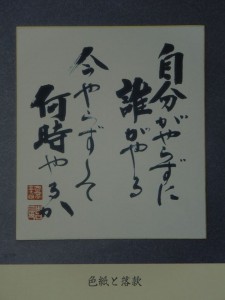 自分がやらずに
誰がやる
今やらずして
何時やるか
色紙と落款